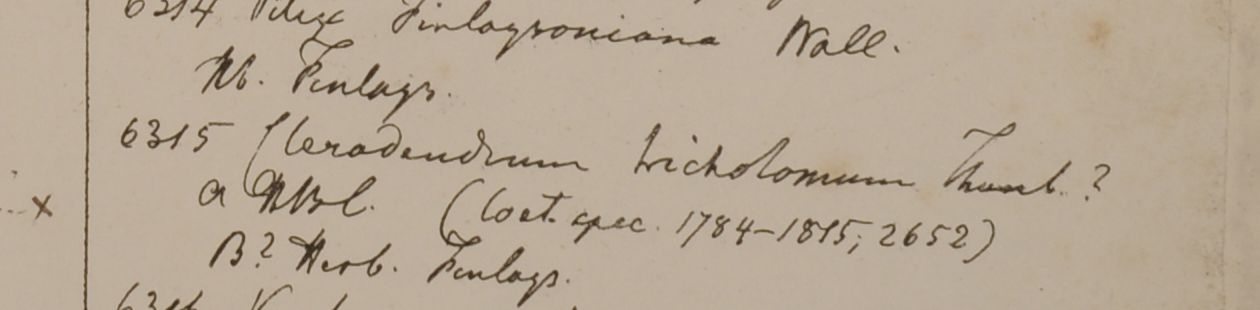 6314 Vitex Finlaysoniana Wall.
Hb. Finlays.
6315 Clerodendrum trichotomum Thunb. ?
a HBC. (Coet. spec. 1784-1815; 2652)
B? Herb. Finlays.
6316